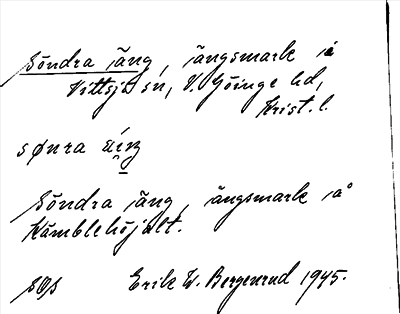 Söndra äng, ängsmark i
Vittsjö sn, V. Göinge hd,
Krist. l.
sønra
Söndra äng, ängsmark på
Kämblehöjalt.
Erik W. Bergenrud 1945.